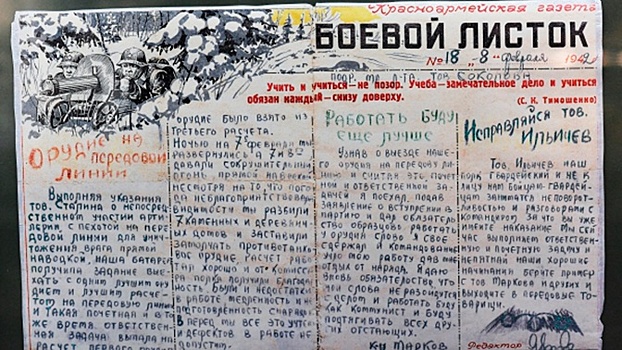 Красноармейская газета
БОЕВОЙ ЛИСТОК
№ 18 „8" февраля 1942
СОКОЛОВА
Учить и учиться—не позор. Учеба—замечательное дело и учиться
обязан каждый—снизу доверху.
(С. К. Тимошенко)
ОРУДИЕ НА
ПЕРЕДОВОЙ
ЛИНИИ
Выполняя указания
тов. Сталина о непосред
ственном участии арти
лерии, с пехотой на пере
довой линии для уни
тожения врага прямой
наводкой, наша батарея
получила задание вые
хать с одним лучшим ору
дием и лучшим расче
том на передовую линию
и такая почетная и в то
же время ответствен
ная задача выпала на
расчет первого
орудие было взято из
третьего расчета.
Ночью на 7 февраля мы
развернулись
давали сокрушительный
огонь прямой наводкой
несмотря на то, что пого
да неблагоприятствовала
видимости мы разбили
4 каменных и деревян
ных домов и заставили
замолчать противотанко
вое орудие, расчет рабо
тал хорошо и от комиссара
полка получили благодарность
были и недостатки
в работе медленность и не
подготовленность снарядов
Вперед мы все это учтем
и дефектов в работе не
допустим.
РАБОТАТЬ БУДУ
ЕЩЕ ЛУЧШЕ
Узнав о выезде нашего
орудия на передовую линию
и считая это почетной
и ответственной задачей
я поехал, подав
заявление о вступлении в
партию и дал обязательство
образцово работать
у орудия слово я свое
сдержал и командование
мою работу дав мне
отдых от наряда. Я даю
вновь обязательство что
мои слова не разойдутся
с делом и работать буду
как коммунист и буду
подтягивать всех друг
их отстающих.
к-ц Марков
ИСПРАВЛЯЙСЯ ТОВ.
ИЛЬИЧЕВ
Тов. Ильичев наш
полк гвардейский и не к
лицу нам бойцам-гвардей
цам заниматся неповорот
ливостью и разговорами с
командиром за что вы уже
имеете наказание мы сей
час выполняем ответственную
и почетную задачу и
непятнай наши хорошие
начинания берите пример
с тов Маркова и других и
выходите в передовые то
варищи.
Редактор